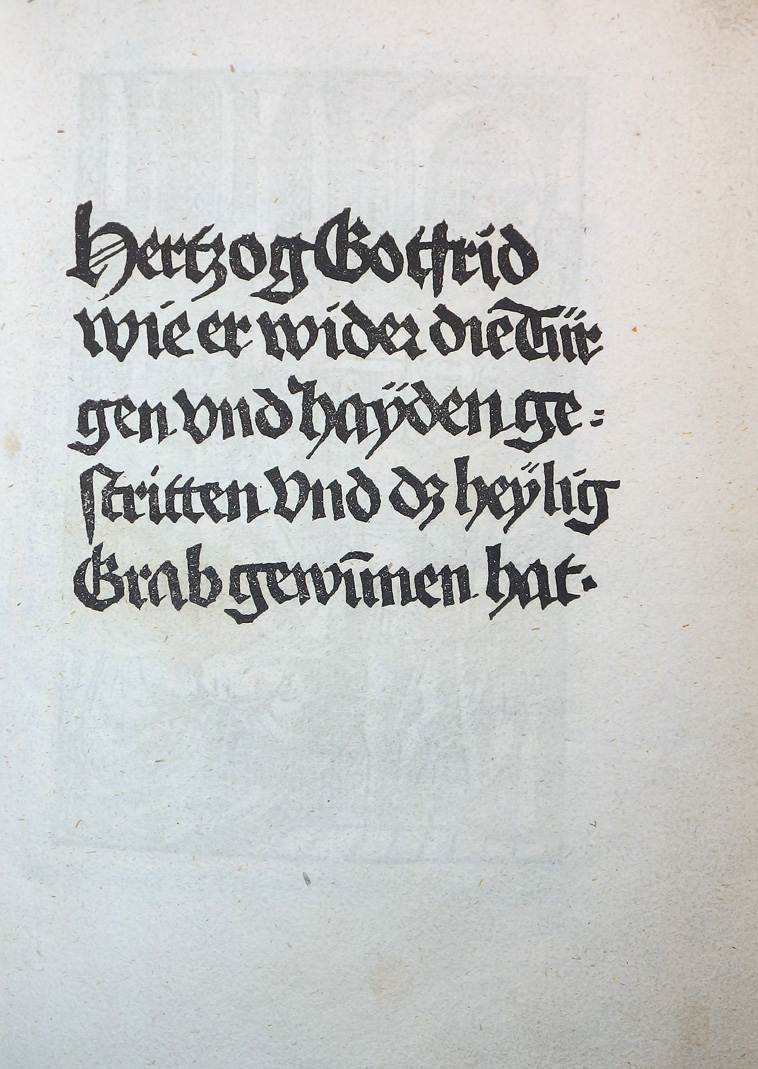 Hertzog Gotfrid
wie er wider die Tür
gen vnd haÿden ge=
ſtritten Vnd dz heÿlig
Grab gewūnen hat.